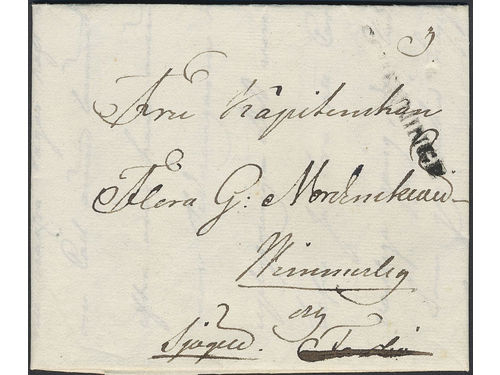 3
Fru Kapitenskan
Flora G: Nordenskiöld
Wimmerby
og
Sjögerd.